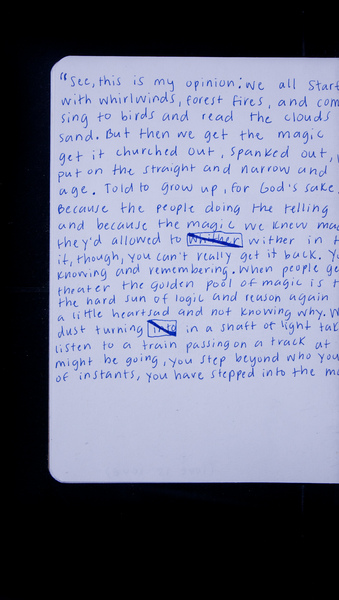 "See, this is my opinion: we all start
with whirlwinds, forest fires, and com
sing to birds and read the clouds
sand. But then we get the magic
get it churched out, spanked out,
put on the straight and narrow and
age. Told to grow up, for God's sake.
Because the people doing the telling
and because the magic we knew mad
they'd allowed to whither wither in t
it, though, you can't really get it back. Yo
knowing and remembering. When people ge
theater the golden pool of magic is t
the hard sun of logic and reason again
a little heartsad and not knowing why. W
dust turning in a shaft of light tak
listen to a train passing on a track at
might be going, you step beyond who you
of instants, you have stepped into the ma